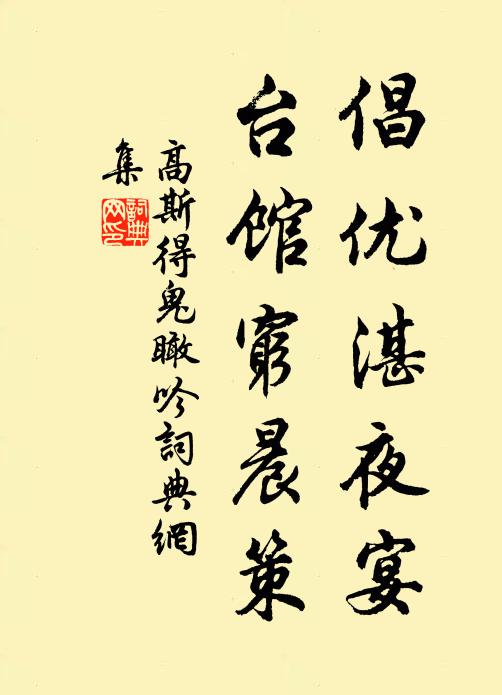 倡优湛夜宴
台馆窮晨策
高斯得鬼瞰吟詞典網
集
詞典
网印